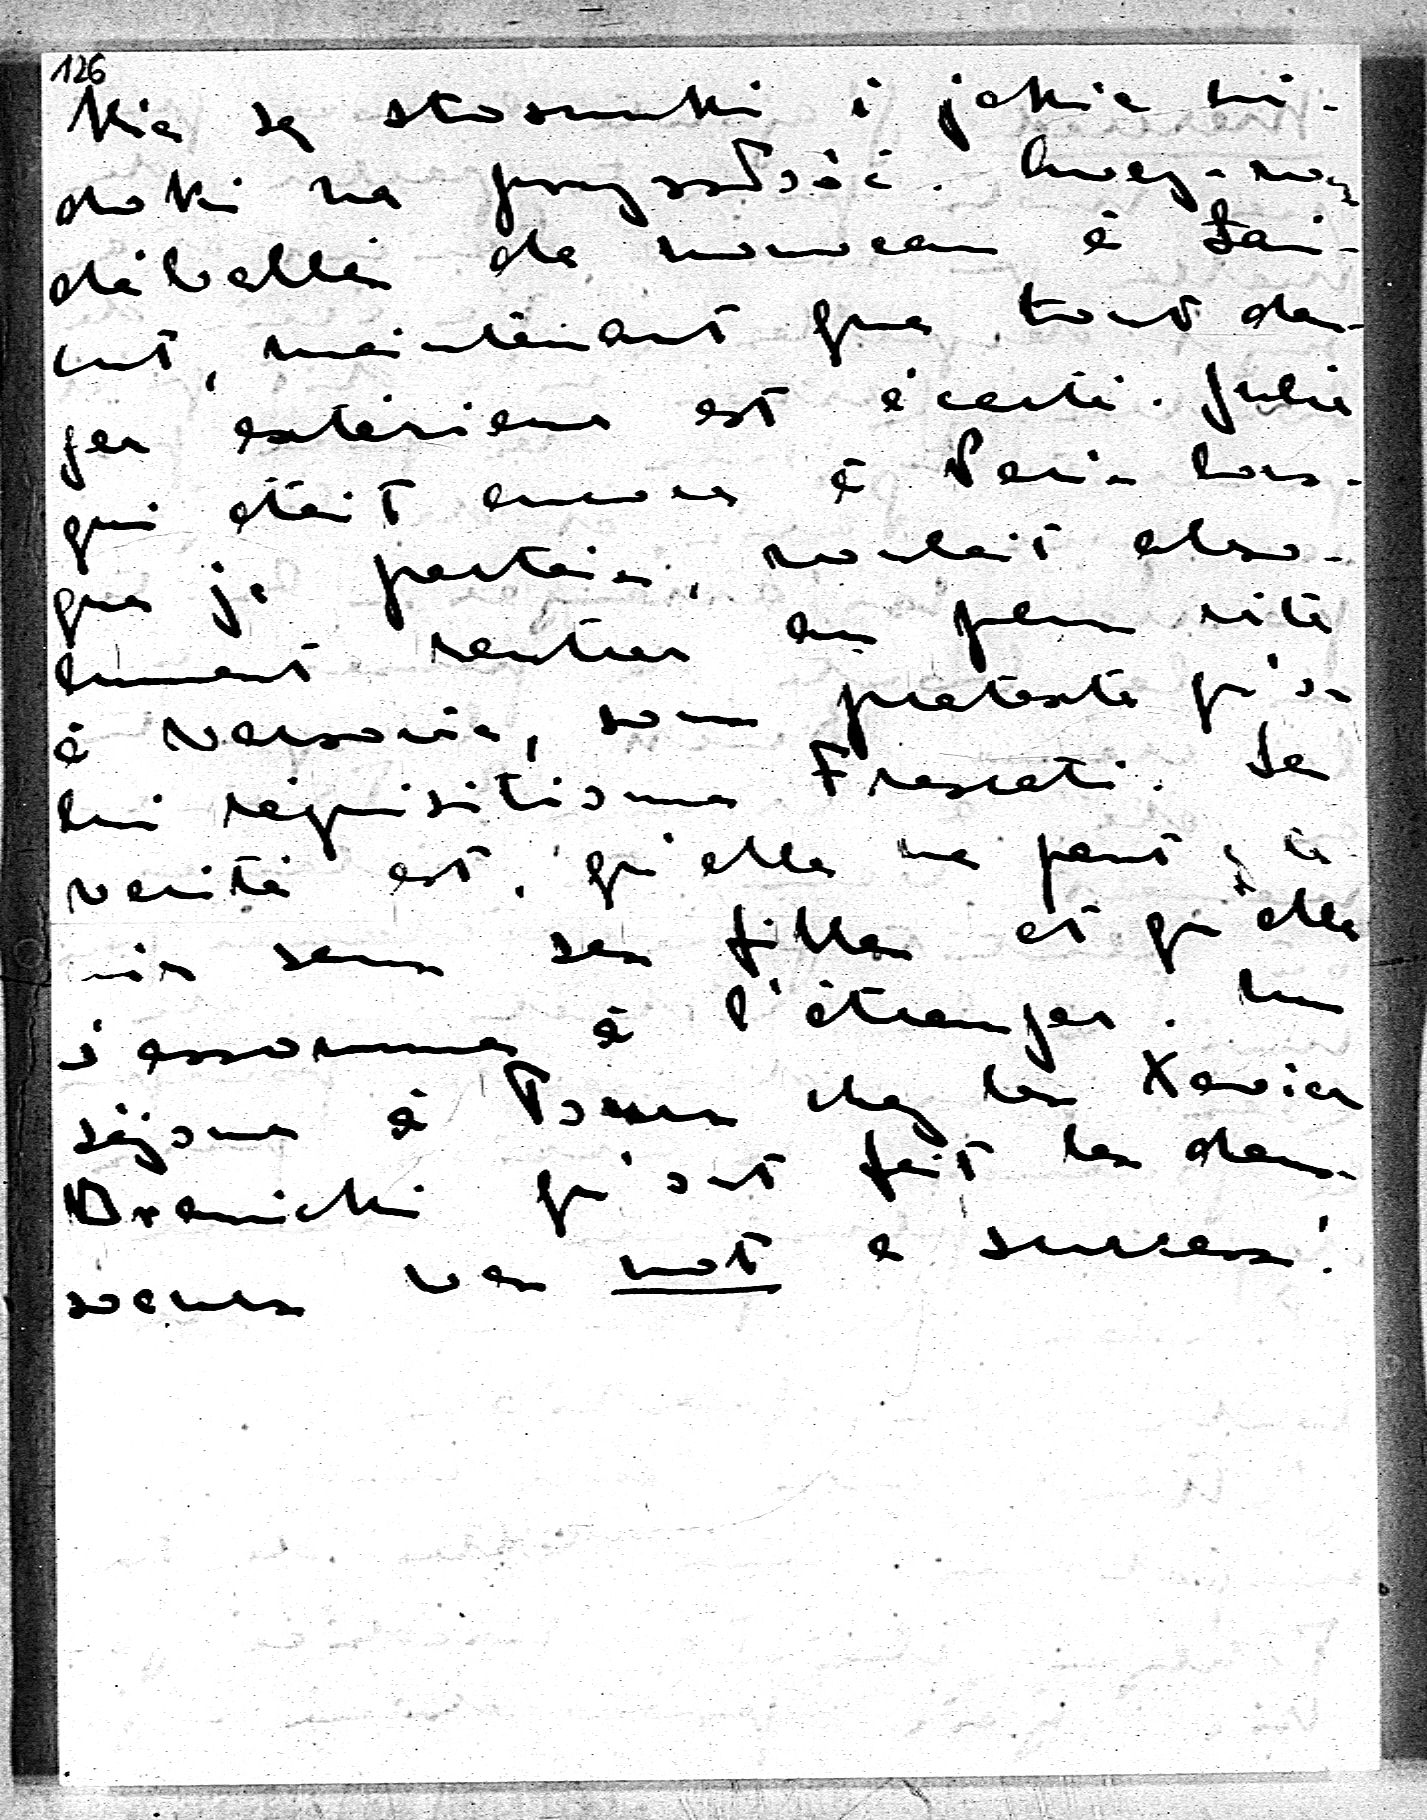 126
kie są stosunki i jakie wi-
doki na przyszłość. Avez-vous
déballé de nouveau à Łań-
cut, maintenant que tout dan-
ger extérieur est écarté. Julie
qui était encore à Paris lors-
que je partais, voulait abso-
lument rentrer au plus vite
à Varsovie, sous prétexte qu'on
lui réquisitionne Frascati. La
vérité est, qu'elle ne peut te-
nir sans ses filles et qu'elle
s'assomme à l'étranger. Un
séjour à Tours chez les Xavier
Branicki qu'ont fait les deux
soeurs was not a success!